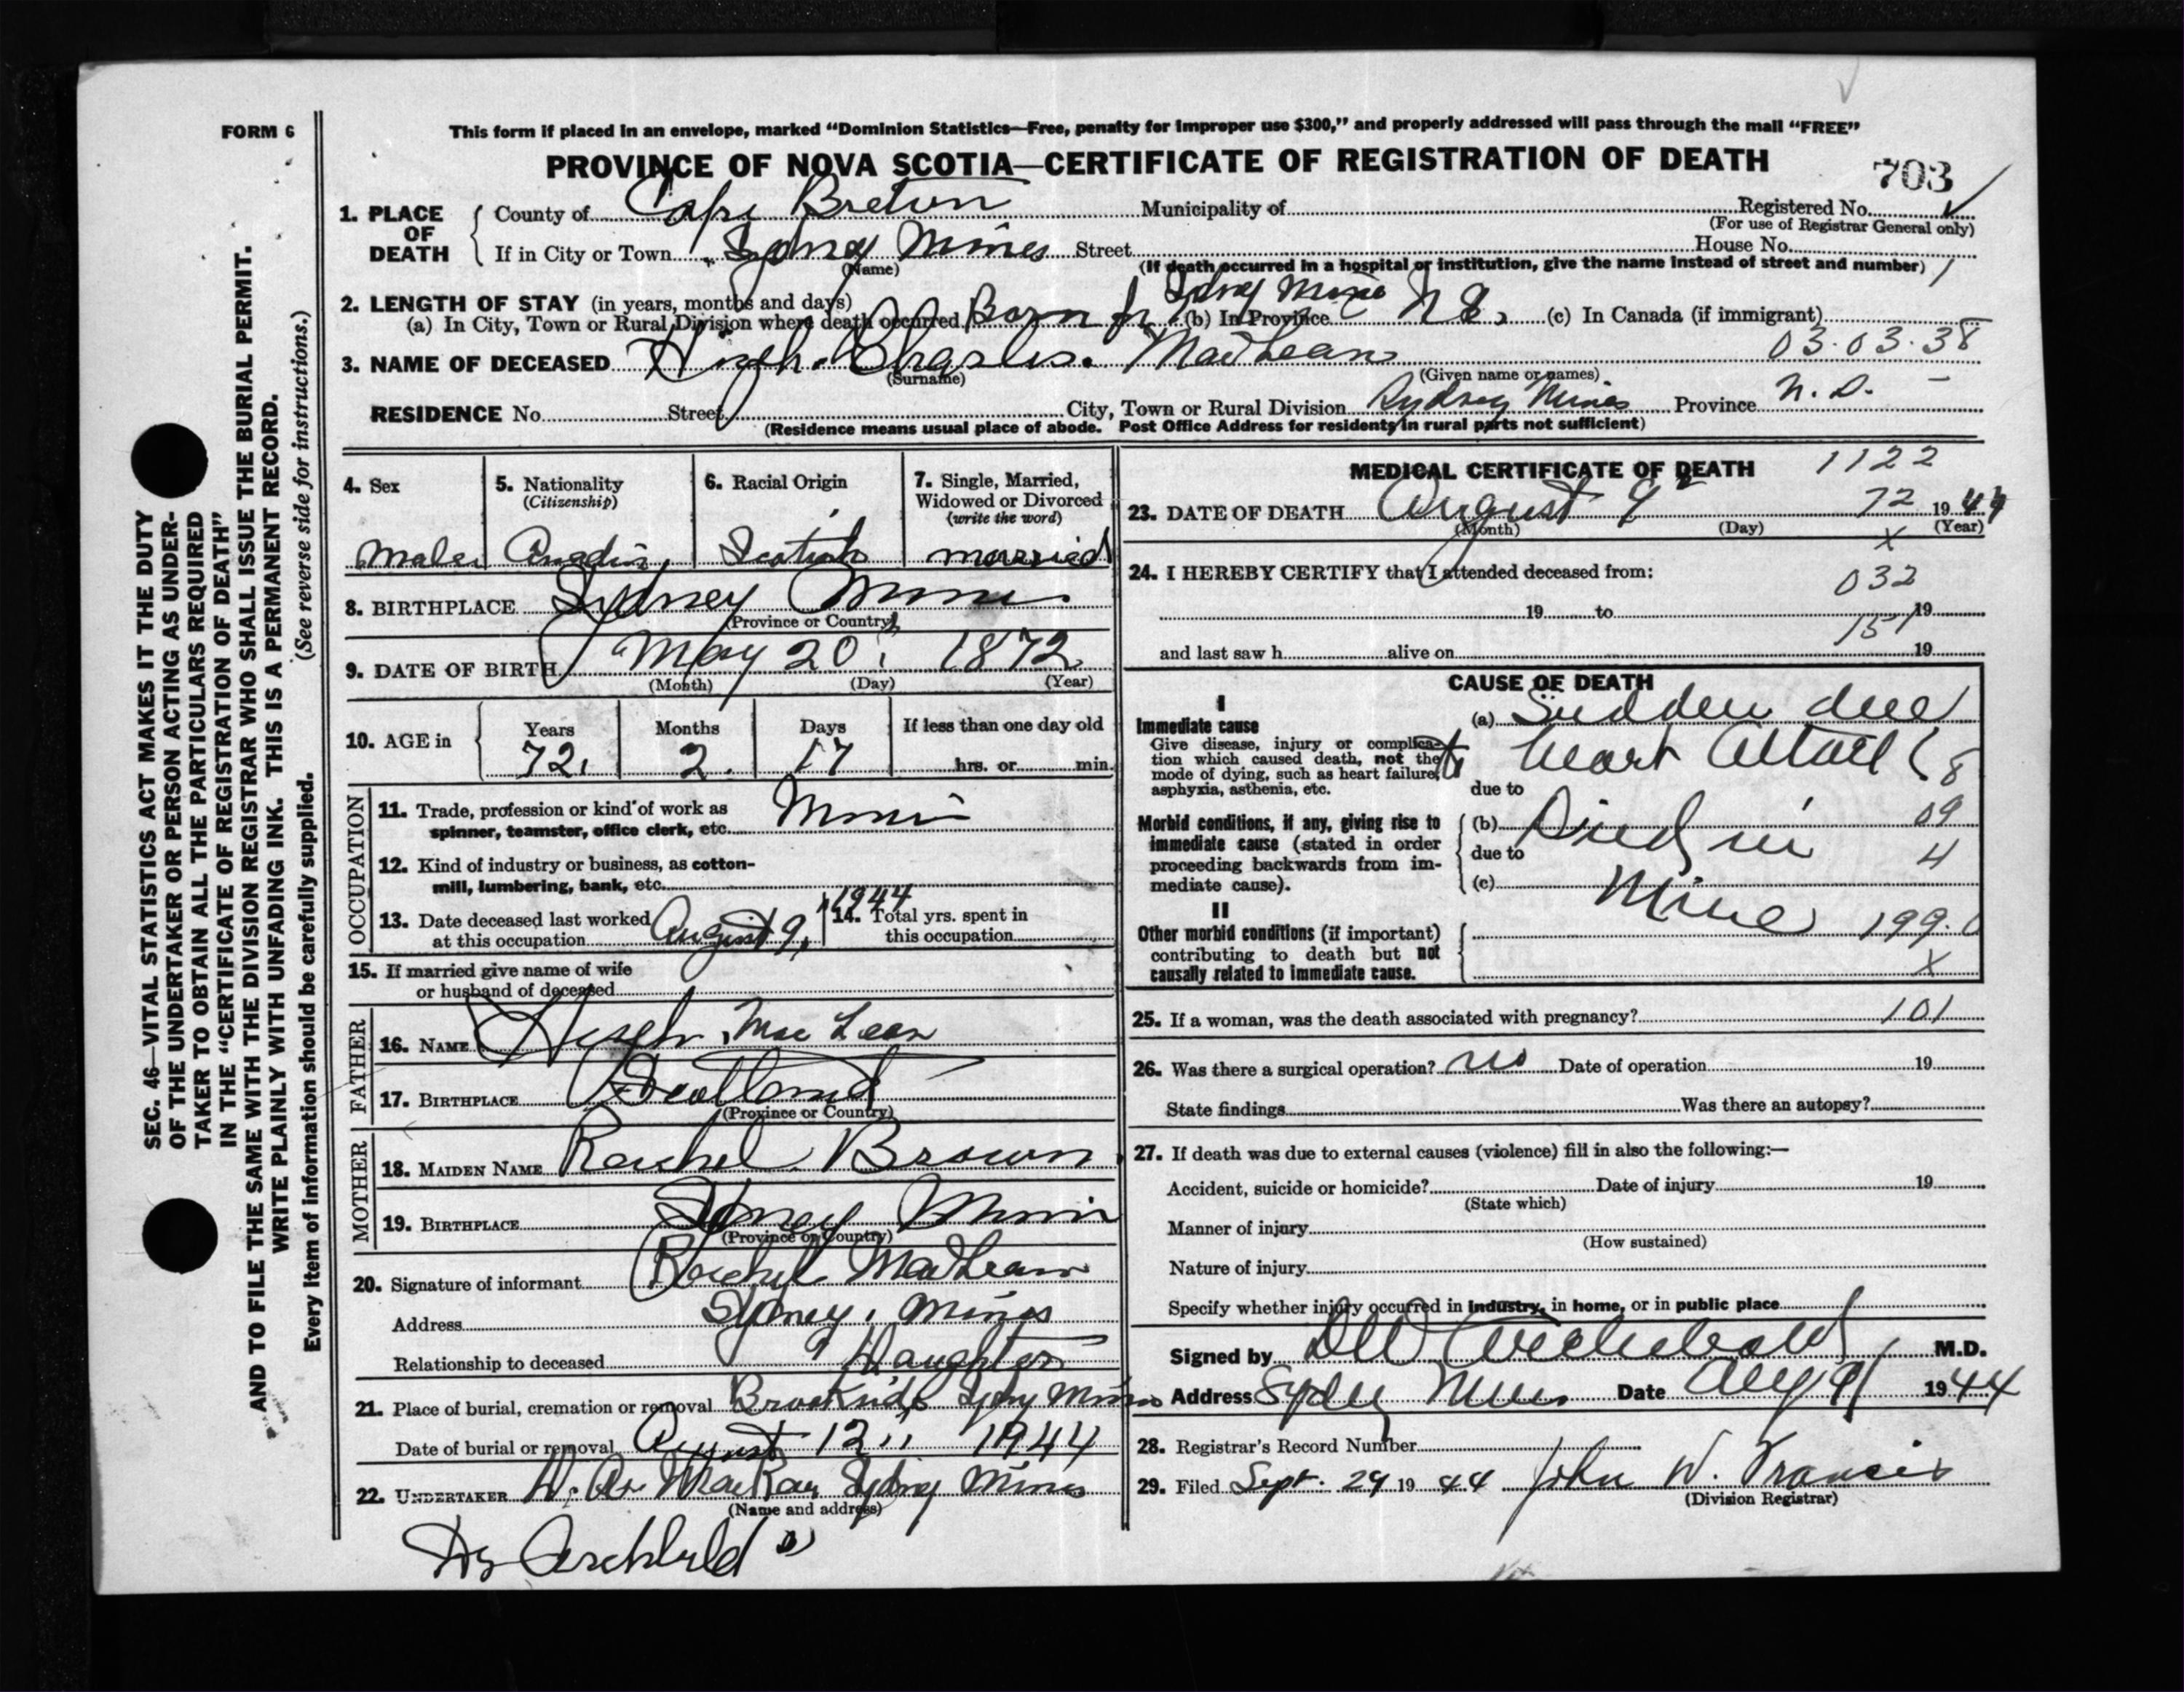 FORM 6
This form if placed in an envelope, marked “Dominion Statistics—Free, penalty for improper use $300,” and properly addressed will pass through the mail “FREE”
PROVINCE OF NOVA SCOTIA—CERTIFICATE OF REGISTRATION OF DEATH
703
1. PLACE OF DEATH { County of Cape Breton Municipality of Registered No.
(For use of Registrar General only)
If in City or Town Sydney Mines Street House No.
(Name) (If death occurred in a hospital or institution, give the name instead of street and number) 1
2. LENGTH OF STAY (in years, months and days)
(a) In City, Town or Rural Division where death occurred Born in Sydney Mines (b) In Province N S. (c) In Canada (if immigrant)
03.03.38
3. NAME OF DECEASED Hugh. Charles. MacLean
(Surname) (Given name or names)
RESIDENCE No. Street City, Town or Rural Division Sydney Mines Province N.S.
(Residence means usual place of abode. Post Office Address for residents in rural parts not sufficient)
4. Sex 5. Nationality (Citizenship) 6. Racial Origin 7. Single, Married, Widowed or Divorced (write the word)
Male Scotish married
8. BIRTHPLACE Sydney Mines
(Province or Country)
9. DATE OF BIRTH May 20, 1872
(Month) (Day) (Year)
10. AGE in { Years Months Days If less than one day old
72. 2. 17 hrs. or min.
OCCUPATION
11. Trade, profession or kind of work as spinner, teamster, office clerk, etc.
12. Kind of industry or business, as cotton-mill, lumbering, bank, etc.
13. Date deceased last worked at this occupation August 9, 1944
14. Total yrs. spent in this occupation
15. If married give name of wife or husband of deceased
FATHER
16. NAME Hugh MacLean
17. BIRTHPLACE Scotland
(Province or Country)
MOTHER
18. MAIDEN NAME Rachel Brown
19. BIRTHPLACE Sydney Mines
(Province or Country)
20. Signature of informant Rachel MacLean
Address Sydney, Mines
Relationship to deceased Daughter
21. Place of burial, cremation or removal Brookside Sydney Mines
Date of burial or removal August 12" 1944
22. UNDERTAKER MacKay Sydney Mines
(Name and address)
Dr Archbald
MEDICAL CERTIFICATE OF DEATH 1122
23. DATE OF DEATH August 9 72 1944
(Month) (Day) (Year)
x
24. I HEREBY CERTIFY that I attended deceased from:
032
19 to 19
151
and last saw h alive on 19
CAUSE OF DEATH
I
Immediate cause
Give disease, injury or complication which caused death, not the mode of dying, such as heart failure, asphyxia, asthenia, etc.
(a) Sudden due
to Heart Attack 8
due to
Morbid conditions, if any, giving rise to immediate cause (stated in order proceeding backwards from immediate cause).
(b) Died in 09
due to 4
(c) Mine
II
Other morbid conditions (if important) contributing to death but not causally related to immediate cause.
199.0
X
25. If a woman, was the death associated with pregnancy? 101
26. Was there a surgical operation? no Date of operation 19
State findings Was there an autopsy?
27. If death was due to external causes (violence) fill in also the following:—
Accident, suicide or homicide? Date of injury 19
(State which)
Manner of injury
(How sustained)
Nature of injury
Specify whether injury occurred in industry, in home, or in public place
Signed by Archibald M.D.
Address Sydney Mines Date Aug 9 1944
28. Registrar's Record Number
29. Filed Sept. 29 1944 John W. Francis
(Division Registrar)
SEC. 46—VITAL STATISTICS ACT MAKES IT THE DUTY
OF THE UNDERTAKER OR PERSON ACTING AS UNDER-
TAKER TO OBTAIN ALL THE PARTICULARS REQUIRED
IN THE “CERTIFICATE OF REGISTRATION OF DEATH”
AND TO FILE THE SAME WITH THE DIVISION REGISTRAR WHO SHALL ISSUE THE BURIAL PERMIT.
WRITE PLAINLY WITH UNFADING INK. THIS IS A PERMANENT RECORD.
Every item of information should be carefully supplied. (See reverse side for instructions.)